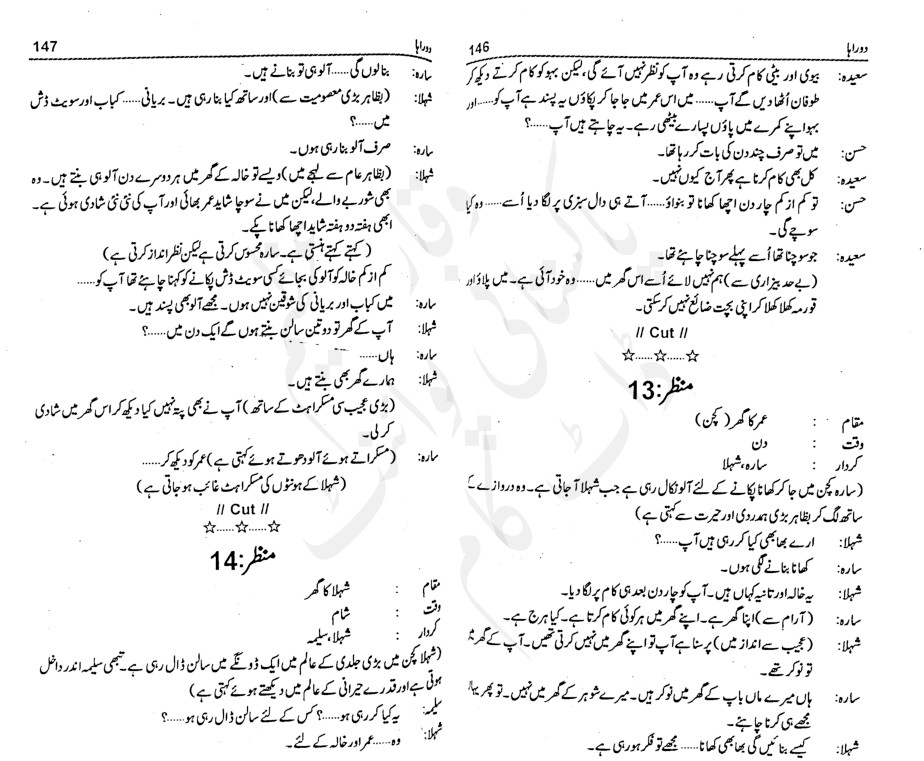 دوراہا 146
سعیدہ: بیوی اور بیٹی کام کرتی رہے وہ آپ کو نظر نہیں آئے گی، لیکن بہو کو کام کرتے دیکھ کر
طوفان اُٹھا دیں گے آپ...... میں اس عمر میں جا جا کر پکاؤں یہ پسند ہے آپ کو...... اور
بہو اپنے کمرے میں پاؤں پسارے بیٹھی رہے۔ یہ چاہتے ہیں آپ......؟
حسن: میں تو صرف چند دن کی بات کر رہا تھا۔
سعیدہ: کل بھی کام کرنا ہے پھر آج کیوں نہیں۔
حسن: تو کم از کم چار دن اچھا کھانا تو بنواؤ...... آتے ہی دال سبزی پر لگا دیا اُسے...... وہ کیا
سوچے گی۔
سعیدہ: جو سوچنا تھا اُسے پہلے سوچنا چاہئے تھا۔
(بے حد بیزاری سے) ہم نہیں لائے اُسے اس گھر میں...... وہ خود آئی ہے۔ میں پلاؤ اور
قورمہ کھلا کھلا کر اپنی بچت ضائع نہیں کر سکتی۔
// Cut //
☆......☆......☆
منظر:13
مقام : عمر کا گھر (کچن)
وقت : دن
کردار : سارہ، شہلا
(سارہ کچن میں جا کر کھانا پکانے کے لئے آلو نکال رہی ہے جب شہلا آ جاتی ہے۔ وہ دروازے کے
ساتھ لگ کر بظاہر بڑی ہمدردی اور حیرت سے کہتی ہے)
شہلا: ارے بھابھی کیا کر رہی ہیں آپ......؟
سارہ: کھانا بنانے لگی ہوں۔
شہلا: یہ خالہ اور تانیہ کہاں ہیں۔ آپ کو چار دن بعد ہی کام پر لگا دیا۔
سارہ: (آرام سے) اپنا گھر ہے۔ اپنے گھر میں ہر کوئی کام کرتا ہے۔ کیا ہرج ہے۔
شہلا: (عجیب سے انداز میں) پر سنا ہے آپ تو اپنے گھر میں نہیں کرتی تھیں۔ آپ کے گھر میں
تو نوکر تھے۔
سارہ: ہاں میرے ماں باپ کے گھر میں نوکر ہیں۔ میرے شوہر کے گھر میں نہیں۔ تو پھر یہاں
مجھے ہی کرنا چاہئے۔
شہلا: کیسے بنائیں گی بھابھی کھانا...... مجھے تو فکر ہو رہی ہے۔
دوراہا 147
سارہ: بنا لوں گی...... آلو ہی تو بنانے ہیں۔
شہلا: (بظاہر بڑی معصومیت سے) اور ساتھ کیا بنا رہی ہیں۔ بریانی...... کباب اور سویٹ ڈش
میں......؟
سارہ: صرف آلو بنا رہی ہوں۔
شہلا: (بظاہر عام سے لہجے میں) ویسے تو خالہ کے گھر میں ہر دوسرے دن آلو ہی بنتے ہیں۔ وہ
بھی شوربے والے، لیکن میں نے سوچا شاید عمر بھائی اور آپ کی نئی نئی شادی ہوئی ہے۔
ابھی ہفتہ دو ہفتہ شاید اچھا کھانا پکے۔
(کہتے کہتے ہنستی ہے۔ سارہ محسوس کرتی ہے لیکن نظر انداز کرتی ہے)
کم از کم خالہ کو آلو کی بجائے کسی سویٹ ڈش پکانے کو کہنا چاہئے تھا آپ کو......
سارہ: میں کباب اور بریانی کی شوقین نہیں ہوں۔ مجھے آلو بھی پسند ہیں۔
شہلا: آپ کے گھر تو دو تین سالن بنتے ہوں گے ایک دن میں......؟
سارہ: ہاں......
شہلا: ہمارے گھر بھی بنتے ہیں۔
(بڑی عجیب سی مسکراہٹ کے ساتھ) آپ نے بھی پتہ نہیں کیا دیکھ کر اس گھر میں شادی
کر لی۔
سارہ: (مسکراتے ہوئے آلو دھوتے ہوئے کہتی ہے) عمر کو دیکھ کر......
(شہلا کے ہونٹوں کی مسکراہٹ غائب ہو جاتی ہے)
// Cut //
☆......☆......☆
منظر:14
مقام : شہلا کا گھر
وقت : شام
کردار : شہلا، سلیمہ
(شہلا کچن میں بڑی جلدی کے عالم میں ایک ڈونگے میں سالن ڈال رہی ہے۔ تبھی سلیمہ اندر داخل
ہوتی ہے اور قدرے حیرانی کے عالم میں دیکھتے ہوئے کہتی ہے)
سلیمہ: یہ کیا کر رہی ہو......؟ کس کے لئے سالن ڈال رہی ہو......؟
شہلا: وہ...... عمر اور خالہ کے لئے۔